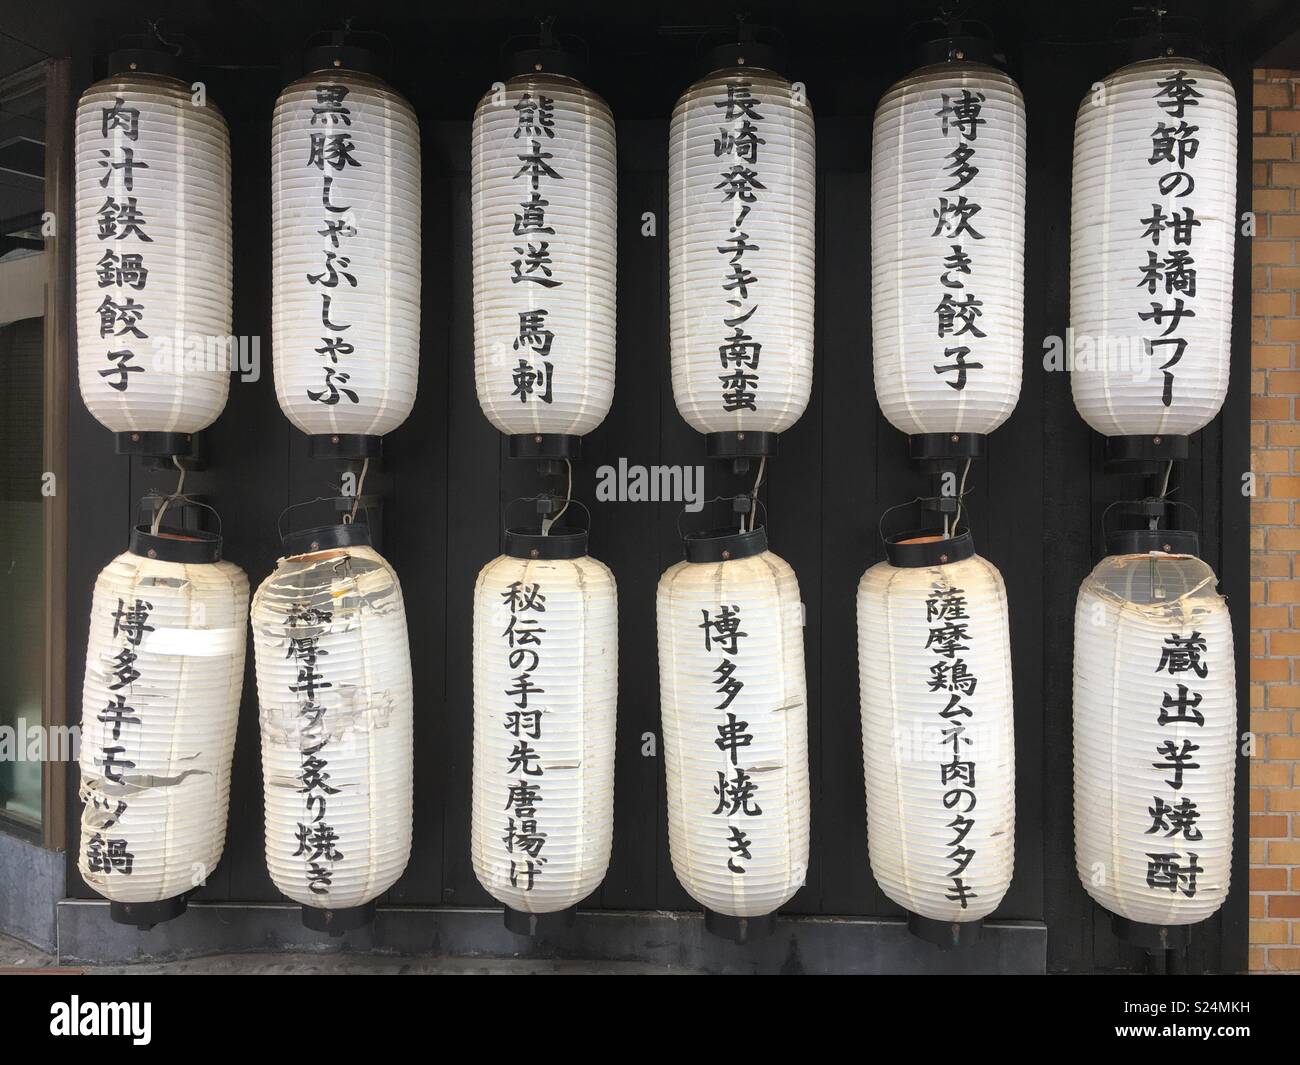 肉汁鉄鍋餃子
黒豚しゃぶしゃぶ
熊本直送 馬刺
長崎発！チキン南蛮
博多炊き餃子
季節の柑橘サワー
博多牛モツ鍋
極厚牛タン炙り焼き
秘伝の手羽先唐揚げ
博多串焼き
薩摩鶏ムネ肉のタタキ
蔵出芋焼酎
alamy
a
alamy stock photo
S24MKH
www.alamy.com